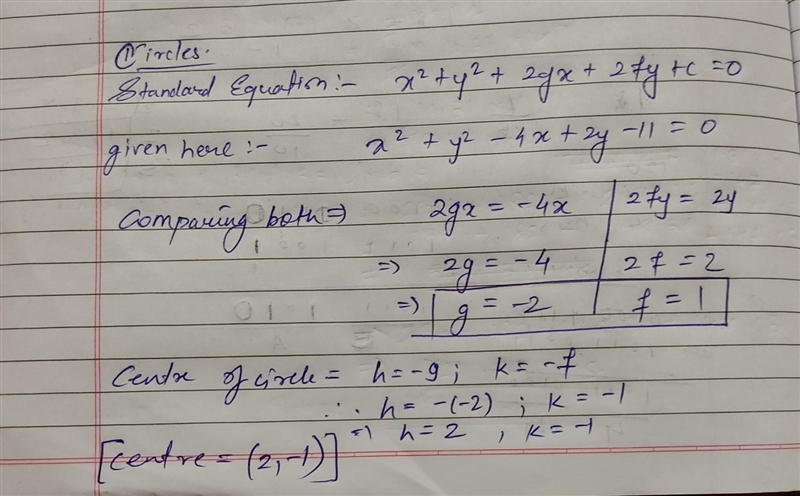 ① Circles.
Standard Equation:- x² + y² + 2gx + 2fy + c = 0
given here :- x² + y² - 4x + 2y - 11 = 0
Comparing both ⇒ 2gx = -4x | 2fy = 2y
⇒ 2g = -4 | 2f = 2
⇒ g = -2 | f = 1
Centre of circle = h = -g ; k = -f
∴ h = -(-2) ; k = -1
⇒ h = 2 , k = -1
[Centre = (2, -1)]